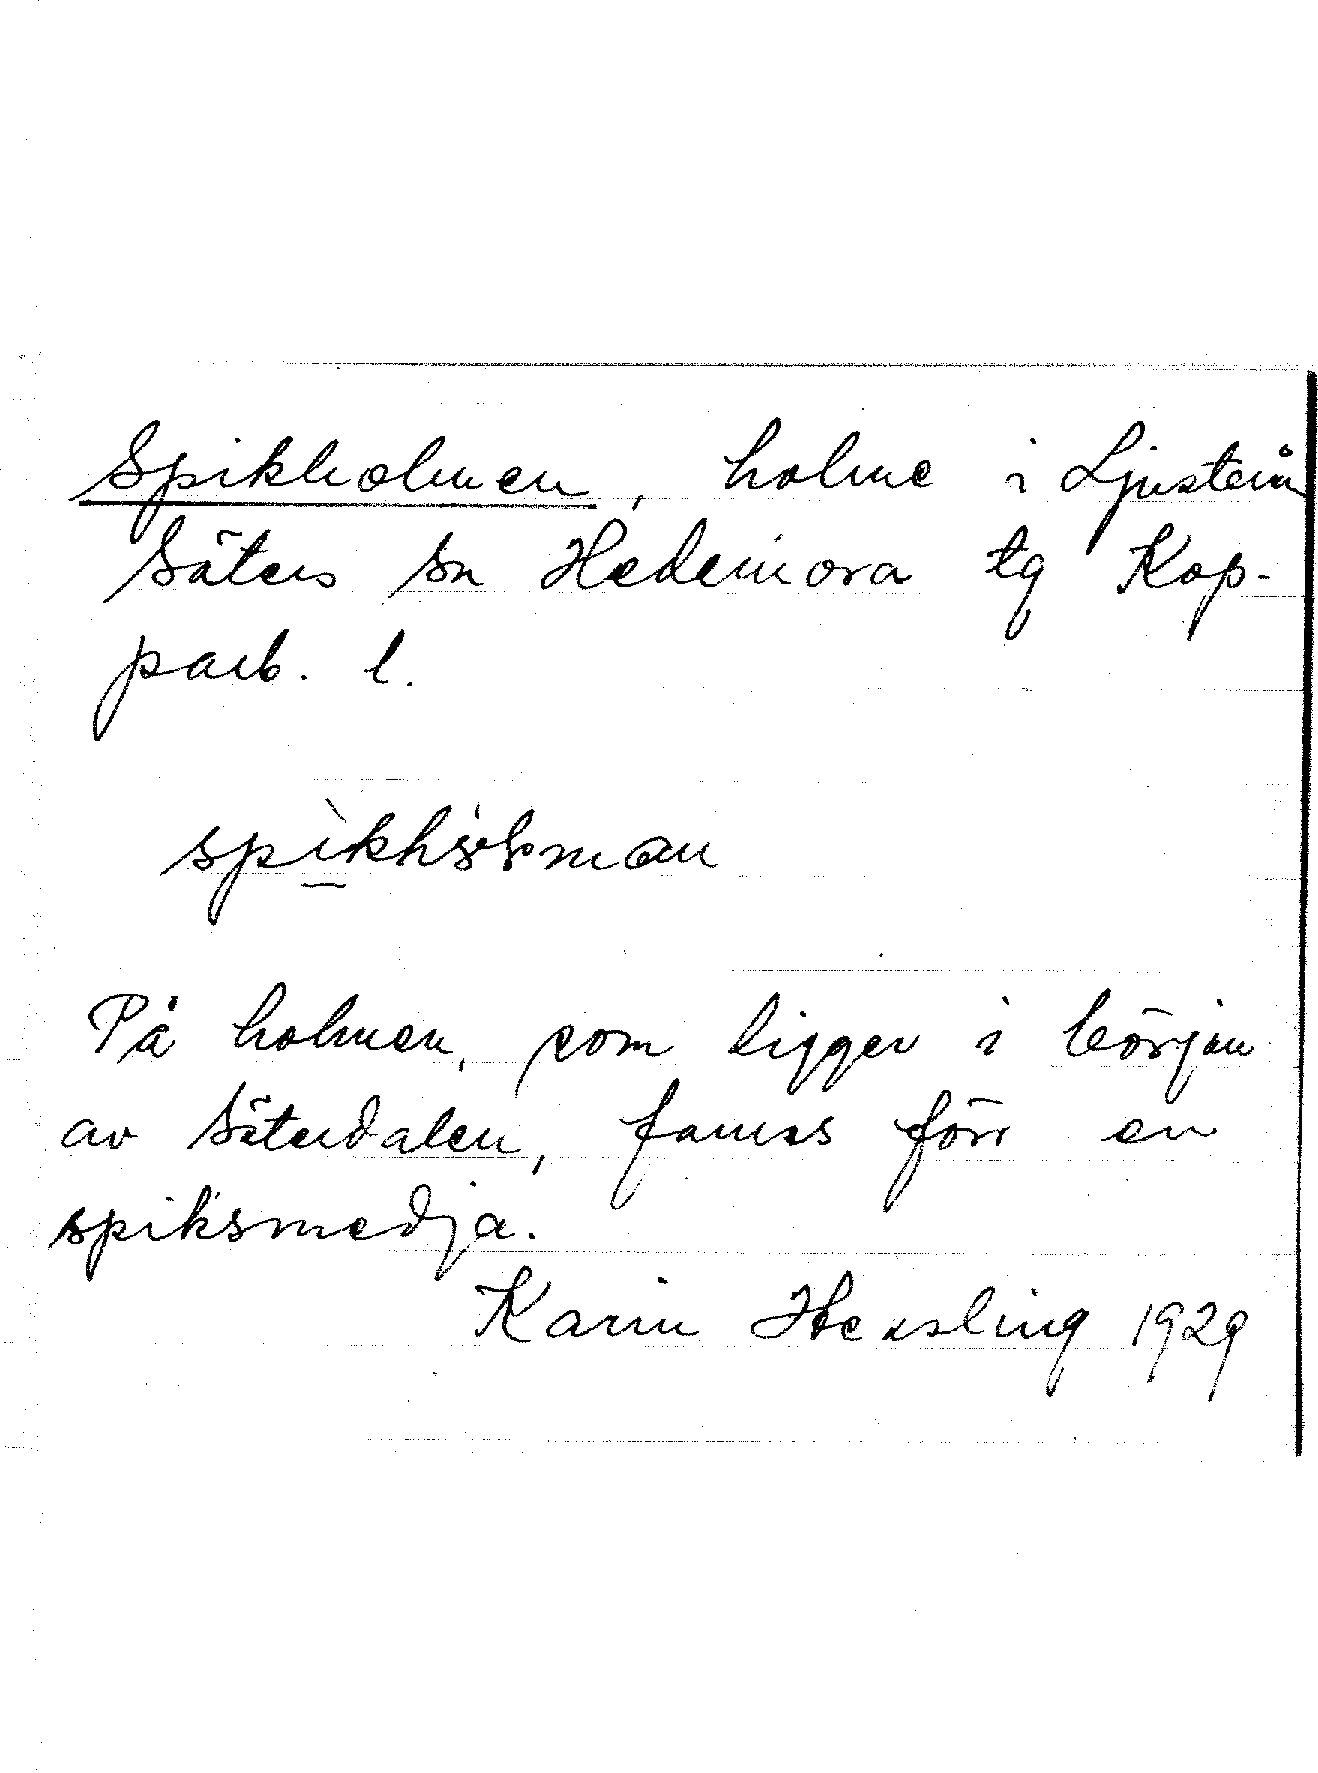 Spikholmen, holme i Ljusterån
Säters sn Hedemora tg Kop-
parb. l.
På holmen, som ligger i början
av Säterdalen, fanns förr en
spiksmedja.
Karin Hessling 1929